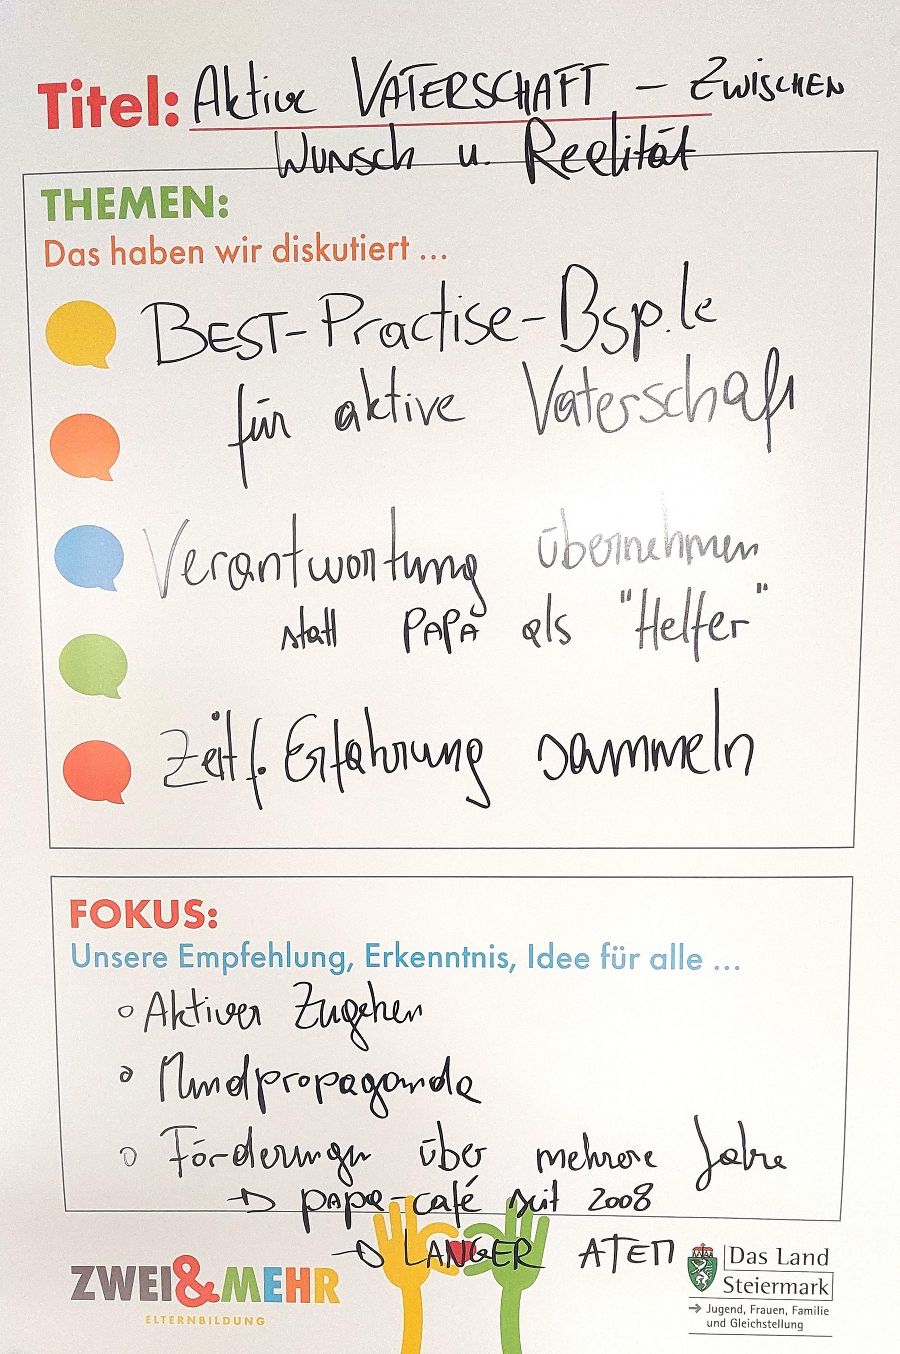 Titel: Aktive VATERSCHAFT – ZWISCHEN
WUNSCH u. Realität
THEMEN:
Das haben wir diskutiert ...
BEST-Practise-Bsp.le
für aktive Vaterschaft
Verantwortung übernehmen
statt PAPA als "Helfer"
Zeit f. Erfahrung sammeln
FOKUS:
Unsere Empfehlung, Erkenntnis, Idee für alle ...
o Aktives Zugehen
o Mundpropaganda
o Förderungen über mehrere Jahre
→ papa-café seit 2008
→ LANGER ATEM
ZWEI&MEHR
ELTERNBILDUNG
Das Land
Steiermark
→ Jugend, Frauen, Familie
und Gleichstellung